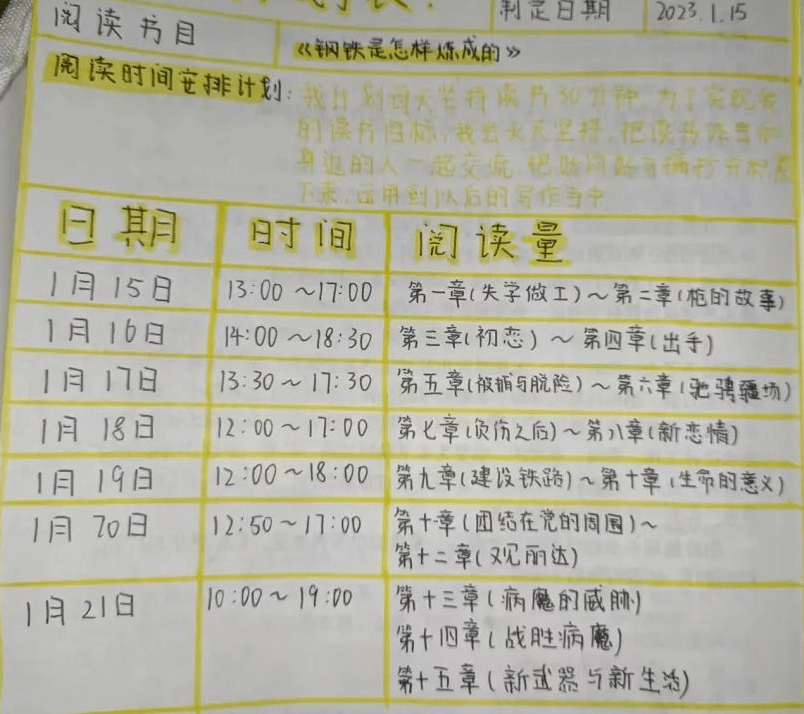 判定日期 2023.1.15
阅读书目 《钢铁是怎样炼成的》
阅读时间安排计划: 我计划每天坚持读书30分钟,为了实现我
的读书目标,我会天天坚持,把读书作当和
身边的人一起交流,把
下来,运用到以后的写作当中
日期 时间 阅读量
1月15日 13:00~17:00 第一章(失学做工)~第二章(枪的故事)
1月16日 14:00~18:30 第三章(初恋)~第四章(出手)
1月17日 13:30~17:30 第五章(被捕与脱险)~第六章(驰骋疆场)
1月18日 12:00~17:00 第七章(负伤之后)~第八章(新恋情)
1月19日 12:00~18:00 第九章(建设铁路)~第十章(生命的意义)
1月20日 12:50~17:00 第十章(团结在党的周围)~
第十二章(又见丽达)
1月21日 10:00~19:00 第十三章(病魔的威胁)
第十四章(战胜病魔)
第十五章(新武器与新生活)